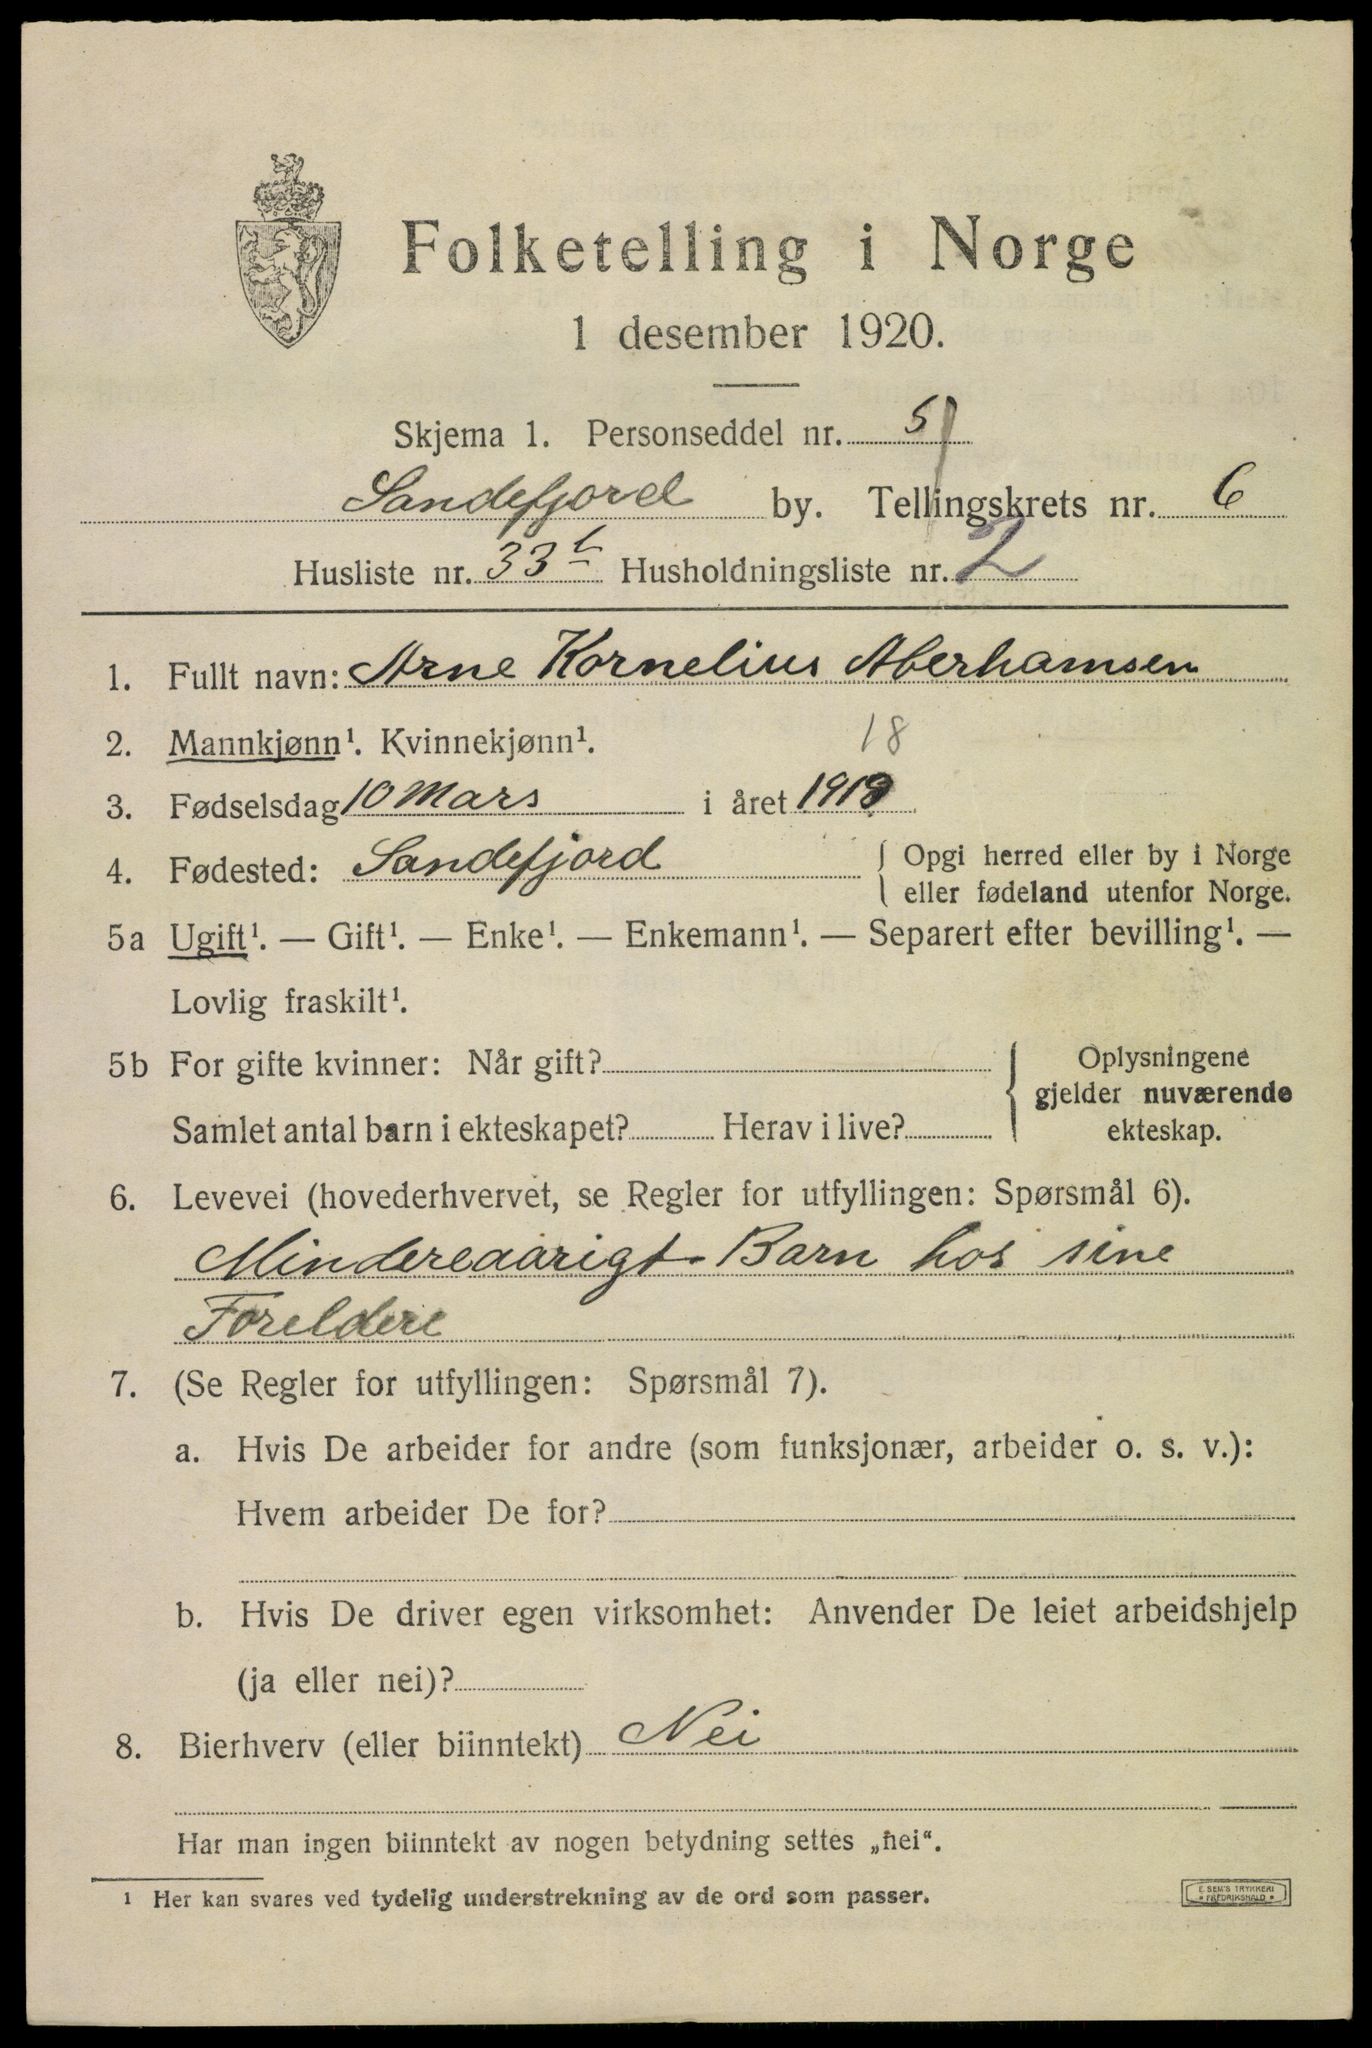 Folketelling i Norge
1 desember 1920.
Skjema 1. Personseddel nr. 5
Sandefjord by. Tellingskrets nr. 6
Husliste nr. 33b Husholdningsliste nr. 2
1. Fullt navn: Arne Kornelius Aberhamsen
2. Mannkjønn¹. Kvinnekjønn¹. 18
3. Fødselsdag 10 Mars i året 1918
4. Fødested: Sandefjord { Opgi herred eller by i Norge
eller fødeland utenfor Norge.
5a Ugift¹. — Gift¹. — Enke¹. — Enkemann¹. — Separert efter bevilling¹. —
Lovlig fraskilt¹.
5b For gifte kvinner: Når gift? { Oplysningene
gjelder nuværende
Samlet antal barn i ekteskapet? Herav i live? ekteskap.
6. Levevei (hovederhvervet, se Regler for utfyllingen: Spørsmål 6).
Mindreaarigt Barn hos sine
Foreldere
7. (Se Regler for utfyllingen: Spørsmål 7).
a. Hvis De arbeider for andre (som funksjonær, arbeider o. s. v.):
Hvem arbeider De for?
b. Hvis De driver egen virksomhet: Anvender De leiet arbeidshjelp
(ja eller nei)?
8. Bierhverv (eller biinntekt) Nei
Har man ingen biinntekt av nogen betydning settes „nei“.
¹ Her kan svares ved tydelig understrekning av de ord som passer.
E. SEM'S TRYKKERI
* FREDRIKSHALD *